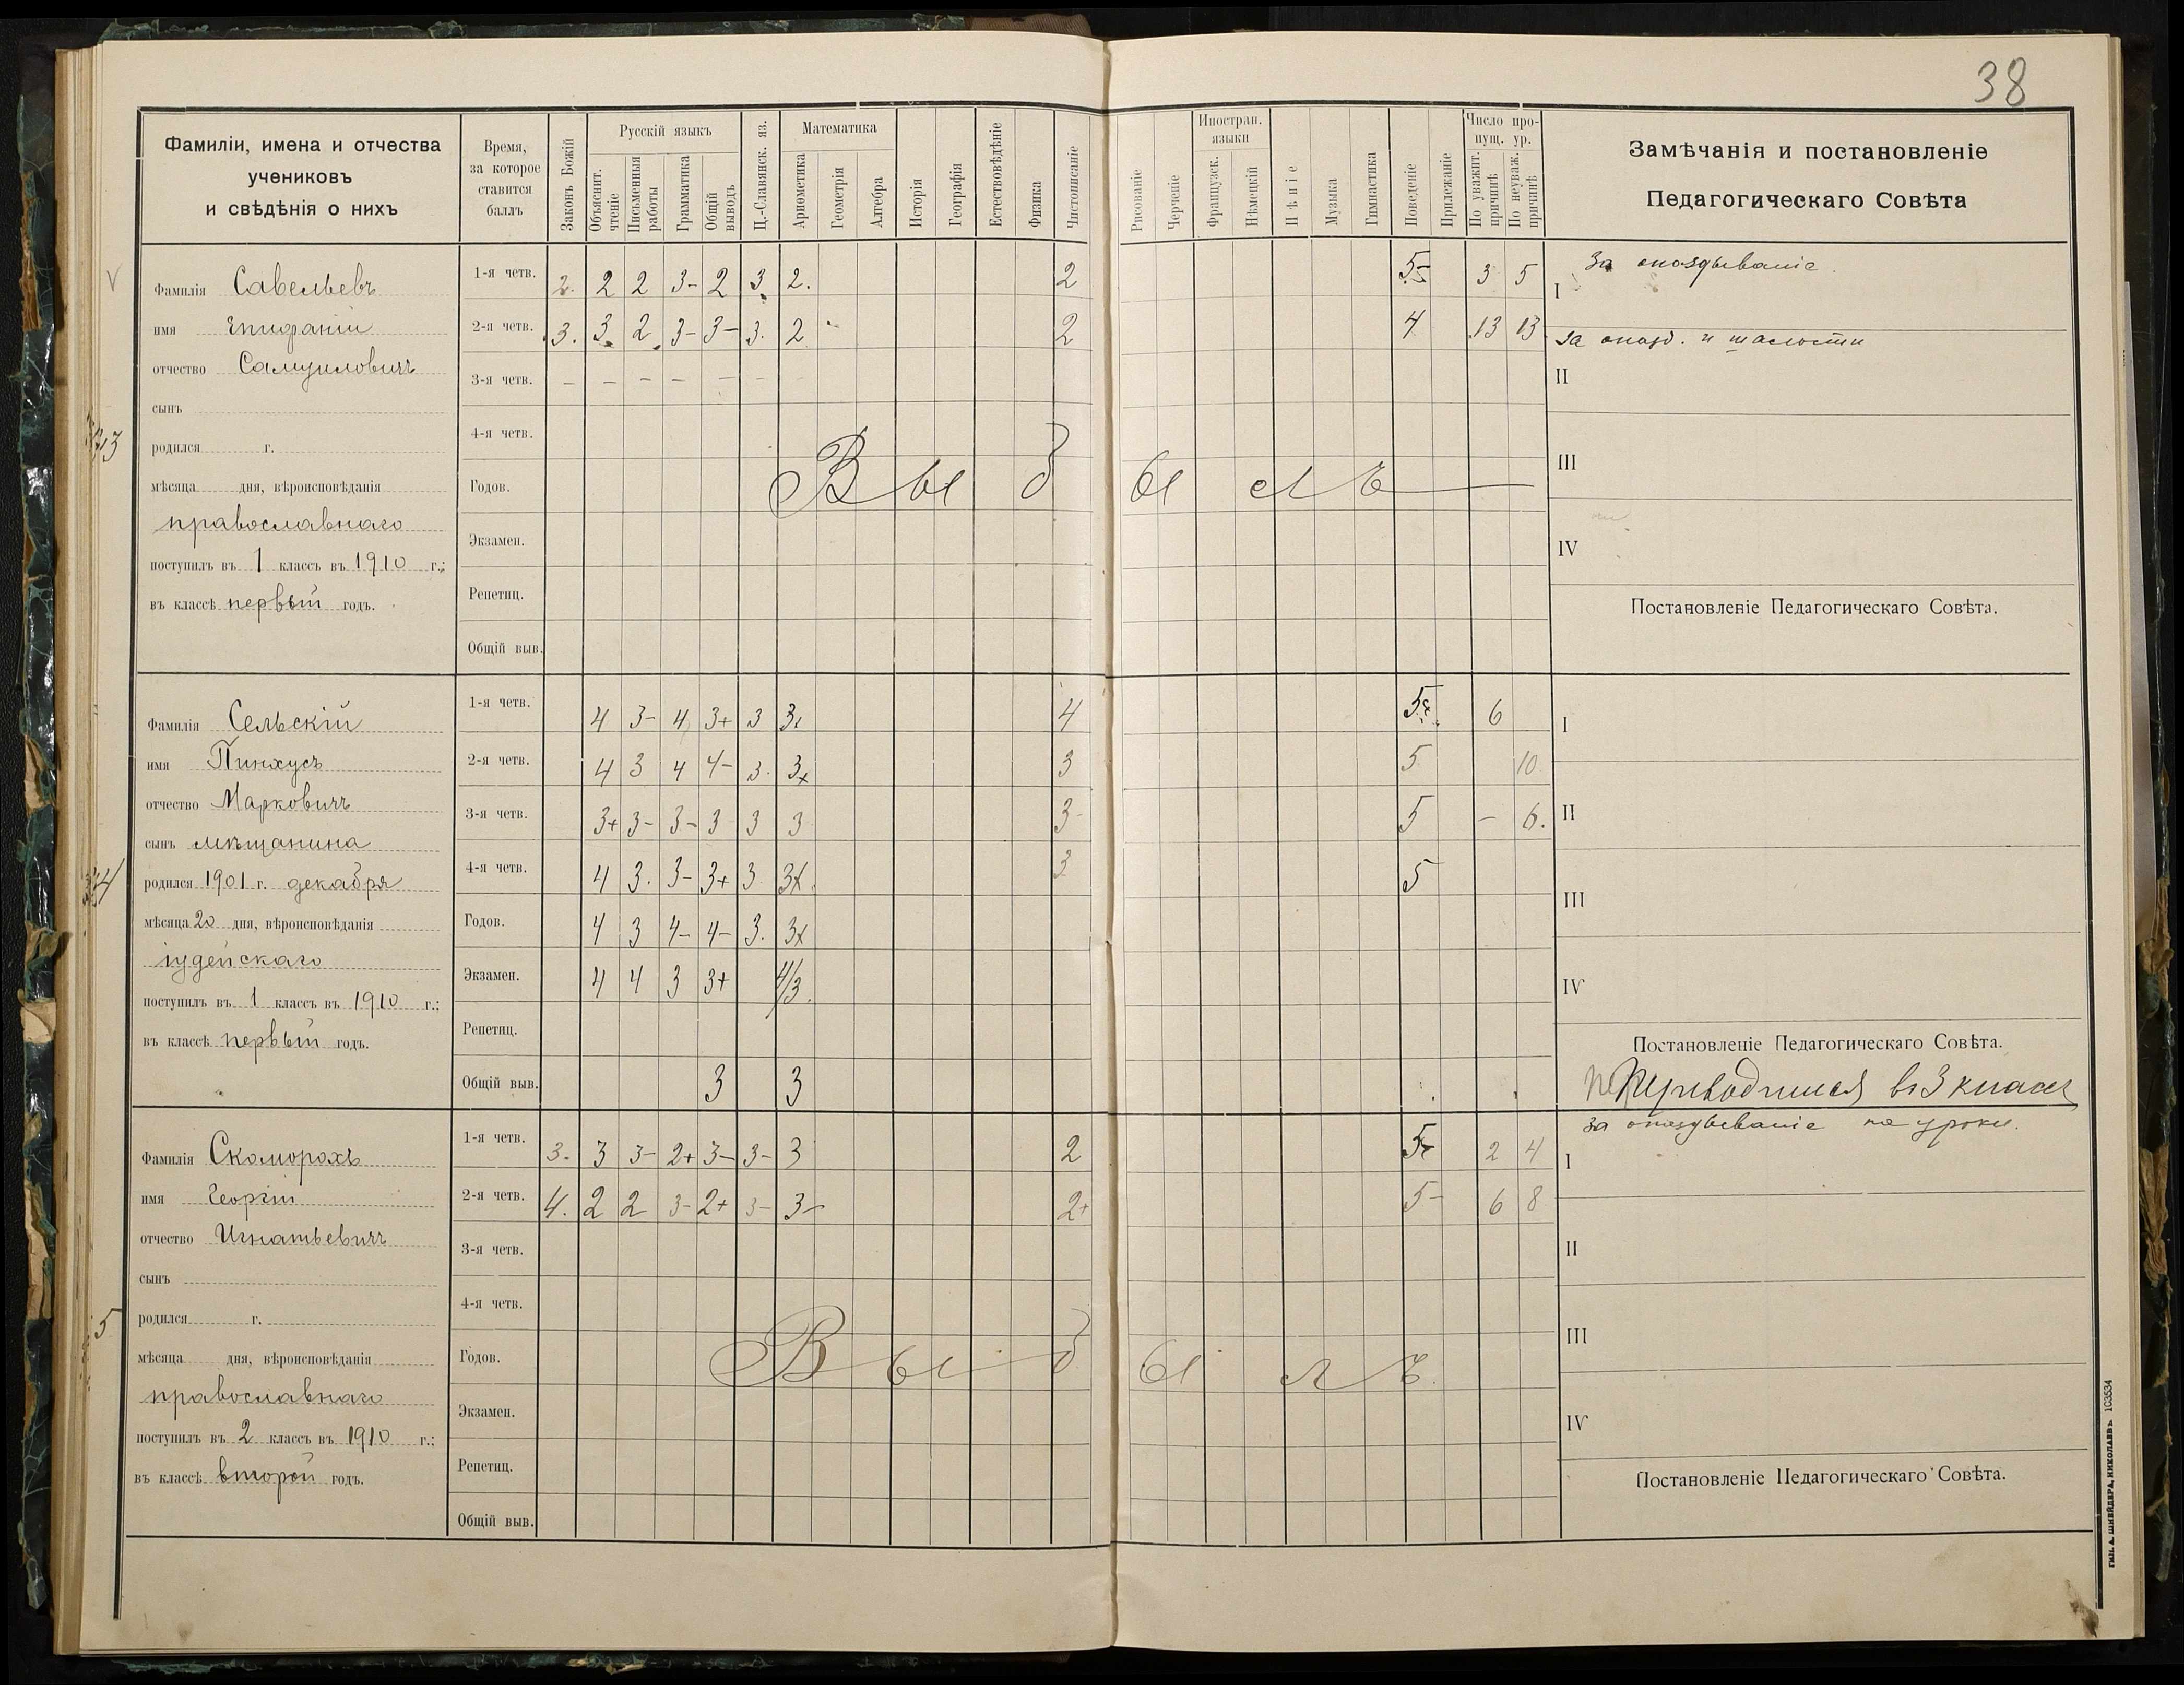 38
Фамиліи, имена и отчества
учениковъ
и свѣдѣнія о нихъ
Время,
за которое
ставится
баллъ
Законъ Божій
Русскій языкъ
Объяснит.
чтеніе
Письменныя
работы
Грамматика
Общій
выводъ
Ц.-Славянск. яз.
Математика
Ариѳметика
Геометрія
Алгебра
Исторія
Географія
Естествовѣдѣніе
Физика
Чистописаніе
Рисованіе
Черченіе
Иностран.
языки
Французск.
Нѣмецкій
Пѣніе
Музыка
Гимнастика
Поведеніе
Прилежаніе
Число про-
пущ. ур.
По уважит.
причинѣ
По неуваж.
причинѣ
Замѣчанія и постановленіе
Педагогическаго Совѣта
Фамилія Савельевъ
имя Епифаній
отчество Самуиловичъ
сынъ
родился г.
мѣсяца дня, вѣроисповѣданія
православнаго
поступилъ въ 1 классъ въ 1910 г.;
въ классѣ первый годъ.
1-я четв. 2. 2 2 3- 2 3 2. 2 5- 3 5
2-я четв. 3. 3 2 3- 3- 3. 2 2 4 13 13
3-я четв. – – – – – –
4-я четв.
Годов.
Выбылъ
Экзамен.
Репетиц.
Общій выв.
I За опаздываніе.
за опозд. и шалости
II
III
IV
Постановленіе Педагогическаго Совѣта.
Фамилія Сельскій
имя Пинхусъ
отчество Марковичъ
сынъ мѣщанина
родился 1901 г. декабря
мѣсяца 20 дня, вѣроисповѣданія
іудейскаго
поступилъ въ 1 классъ въ 1910 г.;
въ классѣ первый годъ.
1-я четв. 4 3- 4 3+ 3 3 4 5 6
2-я четв. 4 3 4 4- 3. 3+ 3 5 10
3-я четв. 3+ 3- 3- 3 3 3 3- 5 – 6.
4-я четв. 4 3. 3- 3+ 3 3+ 3 5
Годов. 4 3 4- 4- 3. 3+
Экзамен. 4 4 3 3+ 4/3.
Репетиц.
Общій выв. 3 3
I
II
III
IV
Постановленіе Педагогическаго Совѣта.
Переводится въ 3 классъ
Фамилія Скоморохъ
имя Георгій
отчество Игнатьевичъ
сынъ
родился г.
мѣсяца дня, вѣроисповѣданія
православнаго
поступилъ въ 2 классъ въ 1910 г.;
въ классѣ второй годъ.
1-я четв. 3. 3 3- 2+ 3- 3- 3 2 5- 2 4
2-я четв. 4. 2 2 3- 2+ 3- 3- 2+ 5- 6 8
3-я четв.
4-я четв.
Годов.
Выбылъ
Экзамен.
Репетиц.
Общій выв.
за опаздываніе на уроки.
I
II
III
IV
Постановленіе Педагогическаго Совѣта.
5